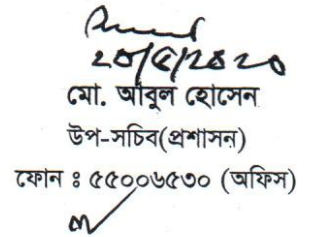 ২০/৫/২০২০
মো. আবুল হোসেন
উপ-সচিব(প্রশাসন)
ফোন ঃ ৫৫০০৬৫৩০ (অফিস)